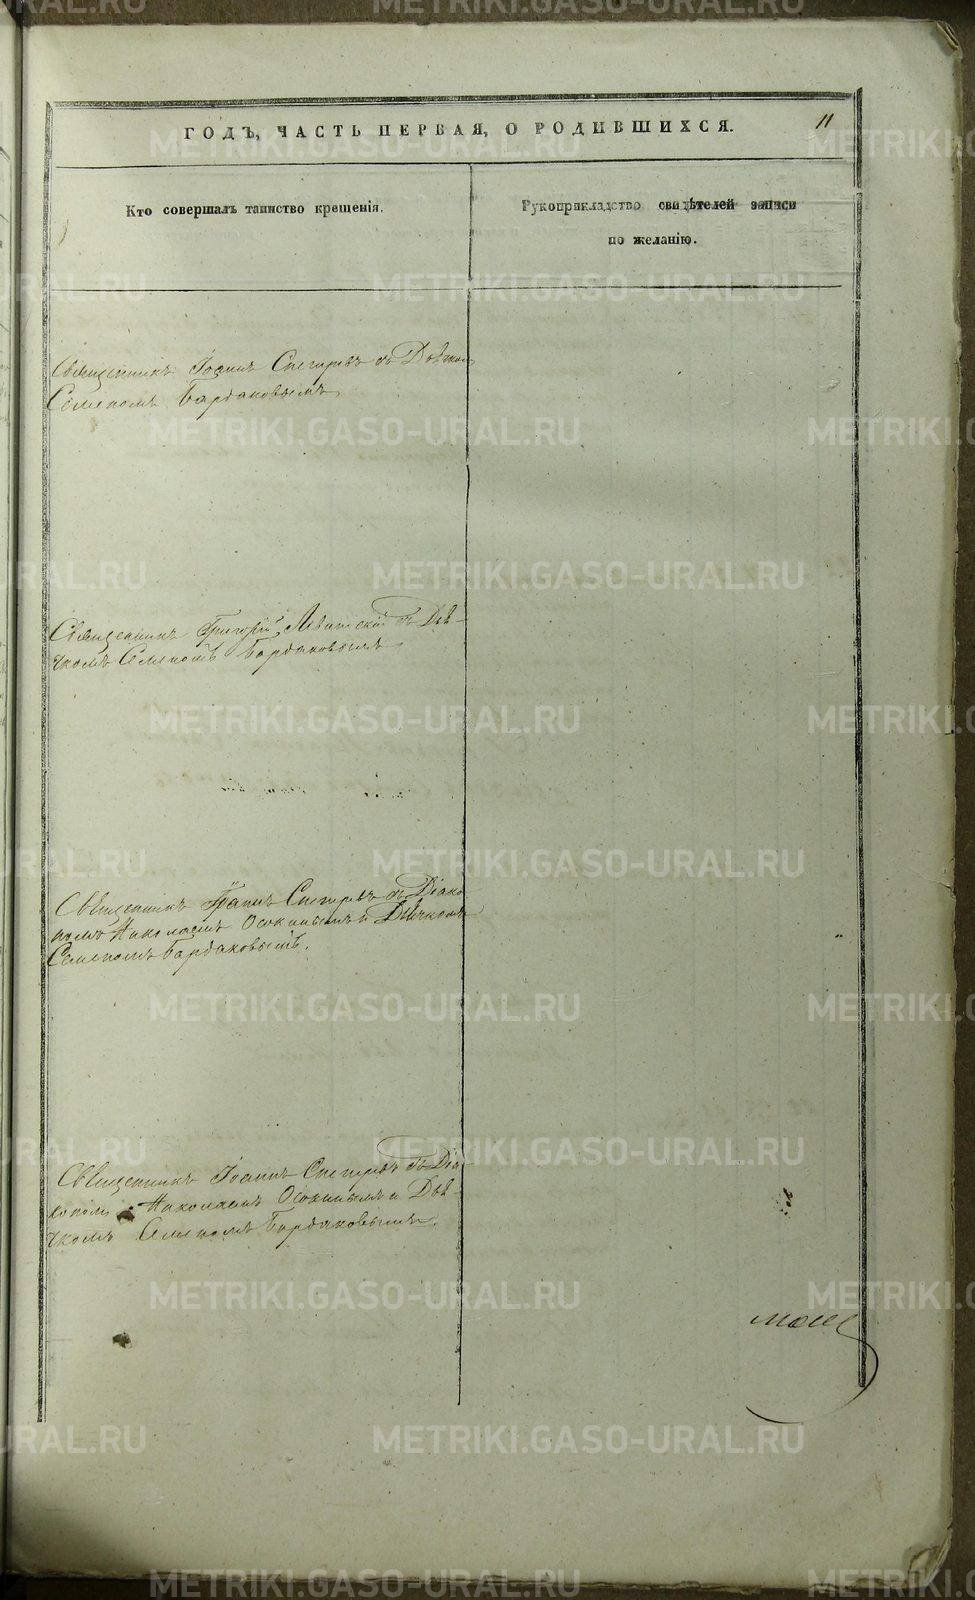 ГОДЪ, ЧАСТЬ ПЕРВАЯ, О РОДИВШИХСЯ.
11
Кто совершалъ таинство крещенія.
Рукоприкладство свидѣтелей записи
по желанію.
Священникъ Іоаннъ Снегиревъ съ Дьячком
Семеномъ Бардаковымъ
Священникъ Григорій Левитскій съ Дья-
чкомъ Семеномъ Бардаковымъ
Священникъ Іоаннъ Снегиревъ съ Діако
номъ Николаемъ Осокинымъ и Дьячкомъ
Семеномъ Бардаковымъ.
Священникъ Іоаннъ Снегиревъ съ Діа-
кономъ Николаемъ Осокинымъ и Дья-
чкомъ Семеномъ Бардаковымъ.
METRIKI.GASO-URAL.RU